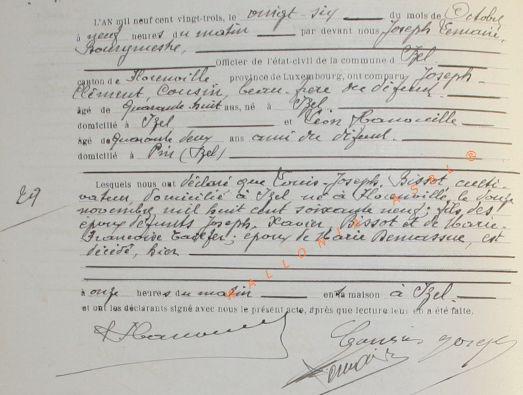 L'AN mil neuf cent vingt-trois, le vingt-six du mois de Octobre
à neuf heures du matin par devant nous Joseph Lemaire
Bourgmestre,
Officier de l'état-civil de la commune d'Izel
canton de Florenville province de Luxembourg, ont comparu Joseph
Clément, Cousin, beau-frère du défunt
âgé de quarante huit ans, né à Izel
domicilié à Izel et Léon Hanonville
âgé de quarante deux ans ami du défunt
domicilié à Pin (Izel)
29
Lesquels nous ont déclaré que Louis-Joseph Bissot, culti-
vateur, domicilié à Izel né à Florenville, le douze
novembre mil huit cent soixante neuf; fils des
époux défunts Joseph Xavier Bissot et de Marie
Françoise époux de Marie est
décédé, hier
à onze heures du matin en sa maison à Izel
et ont les déclarants signé avec nous le présent acte, après que lecture leur en a été faite.
Cousin Joseph
Lemaire